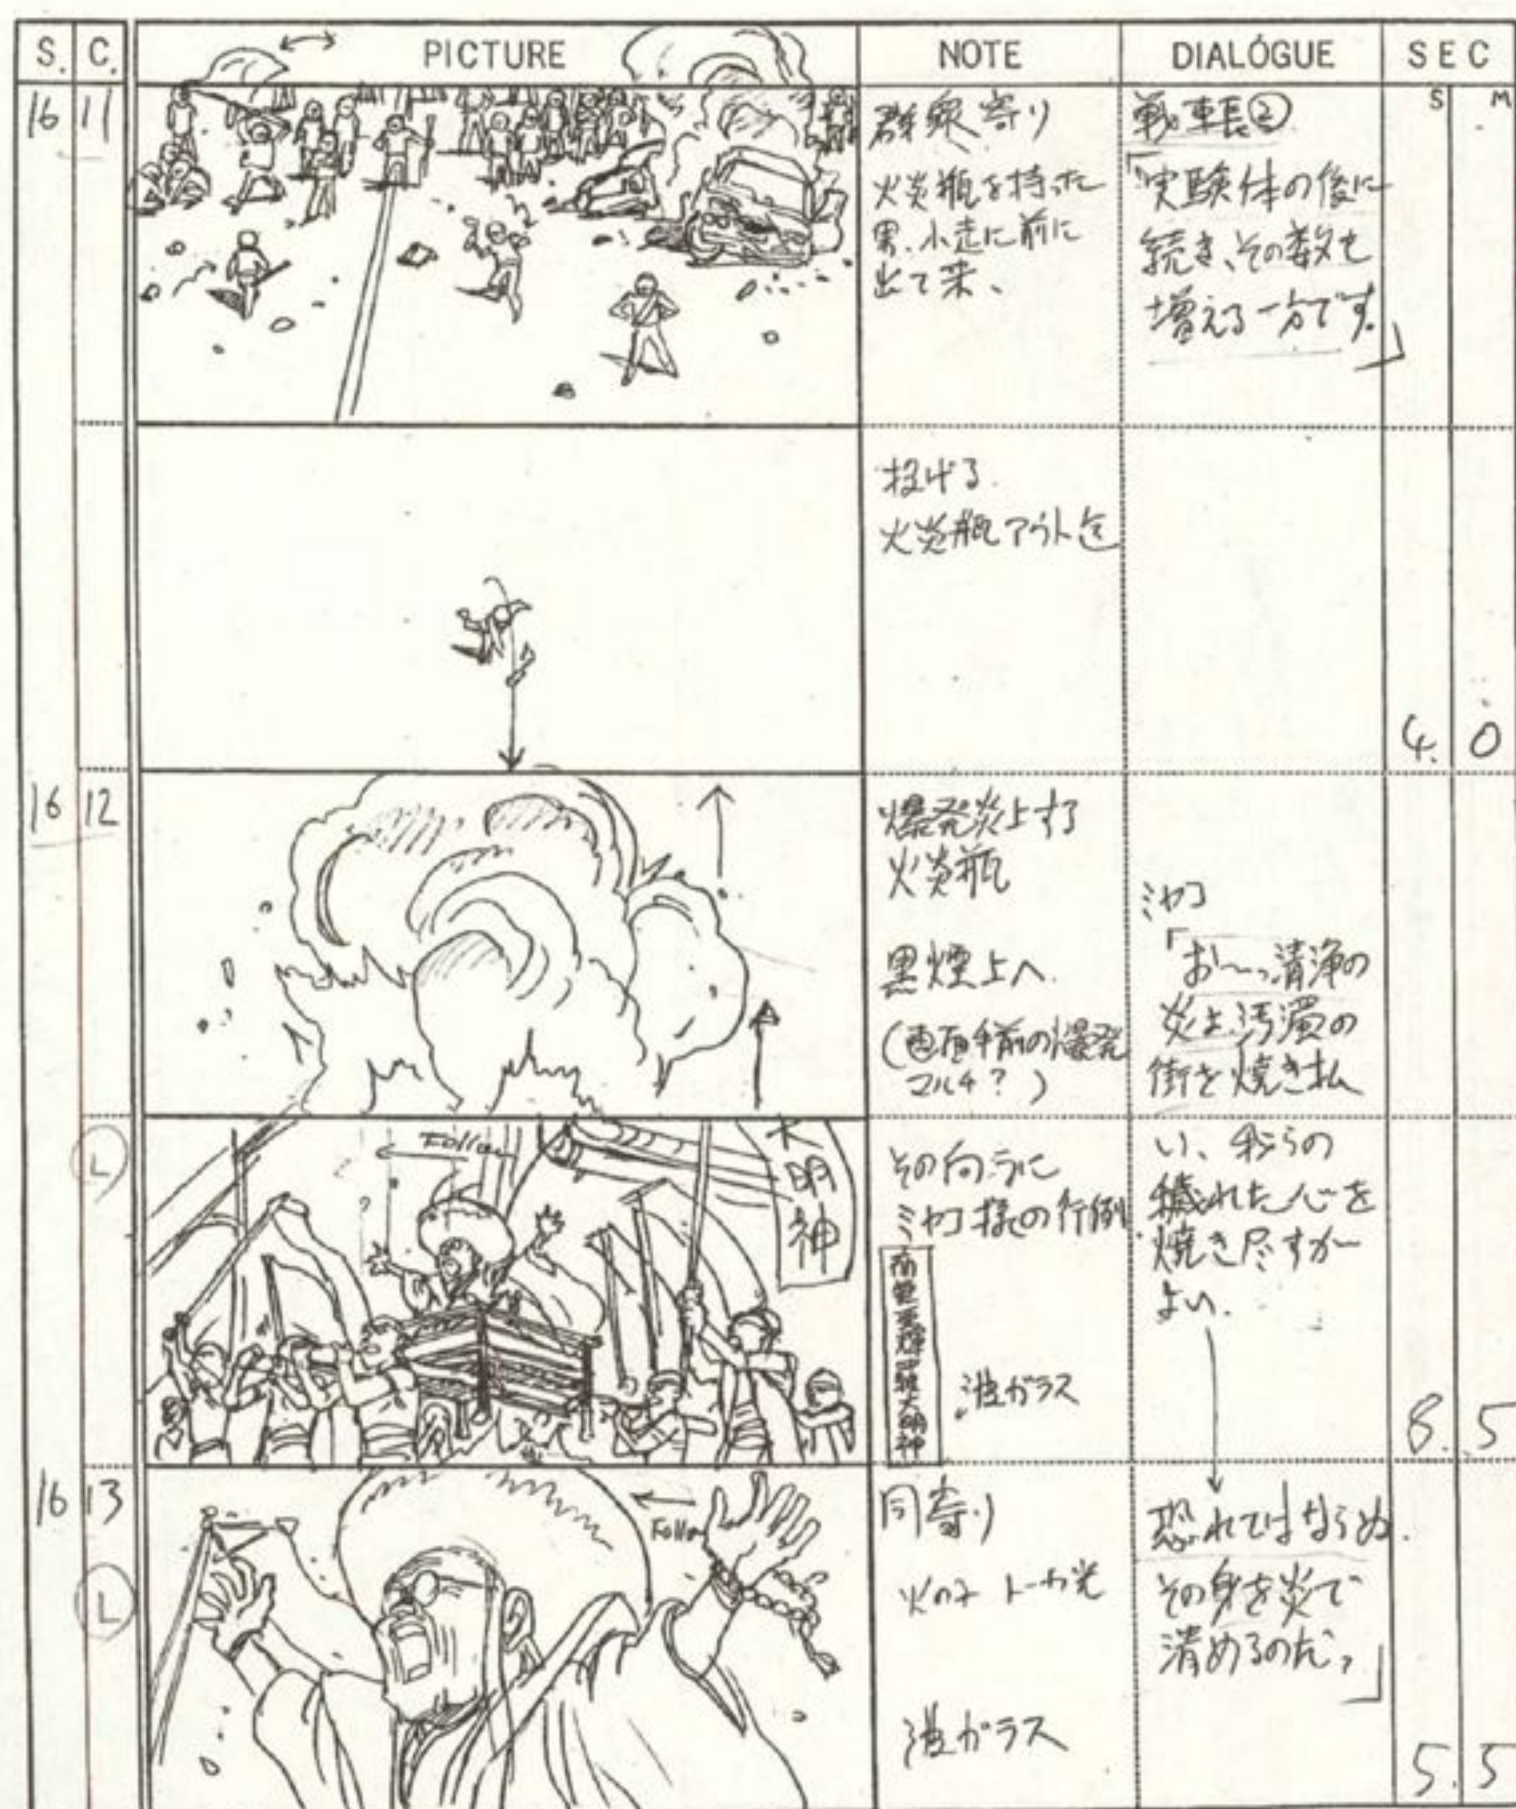 S. C. PICTURE NOTE DIALOGUE SEC
S M
16 11
群衆寄り
火炎瓶を持った
男、小走に前に
出て来、
戦車長②
「実験体の後に
続き、その数も
増える一方です。」
投げる。
火炎瓶アウト迄
4. 0
16 12
爆発炎上する
火炎瓶
黒煙上へ
(画面手前の爆発
マルチ?)
ミヤコ
「お〜っ清浄の
炎よ、汚濁の
街を焼き払
L
Follow
大明神
その向うに
ミヤコ様の行列
大明神
波ガラス
い、
穢れた心を
焼き尽すが
よい。
8. 5
16 13
L
Follow
同寄り
火の子
波ガラス
恐れてはならぬ。
その身を炎で
清めるのだ、」
5. 5